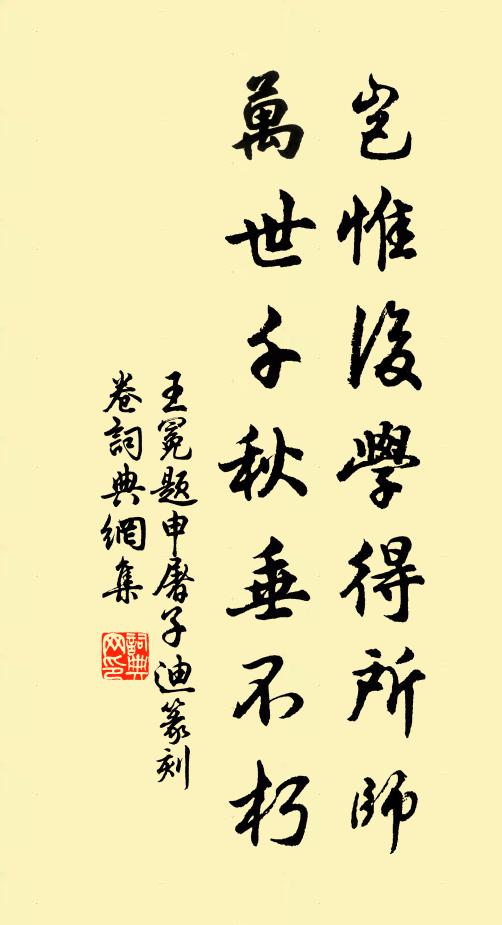 豈惟後學得所師
萬世千秋垂不朽
王冕題申屠子迪篆刻
卷詞典網集
詞典
网印